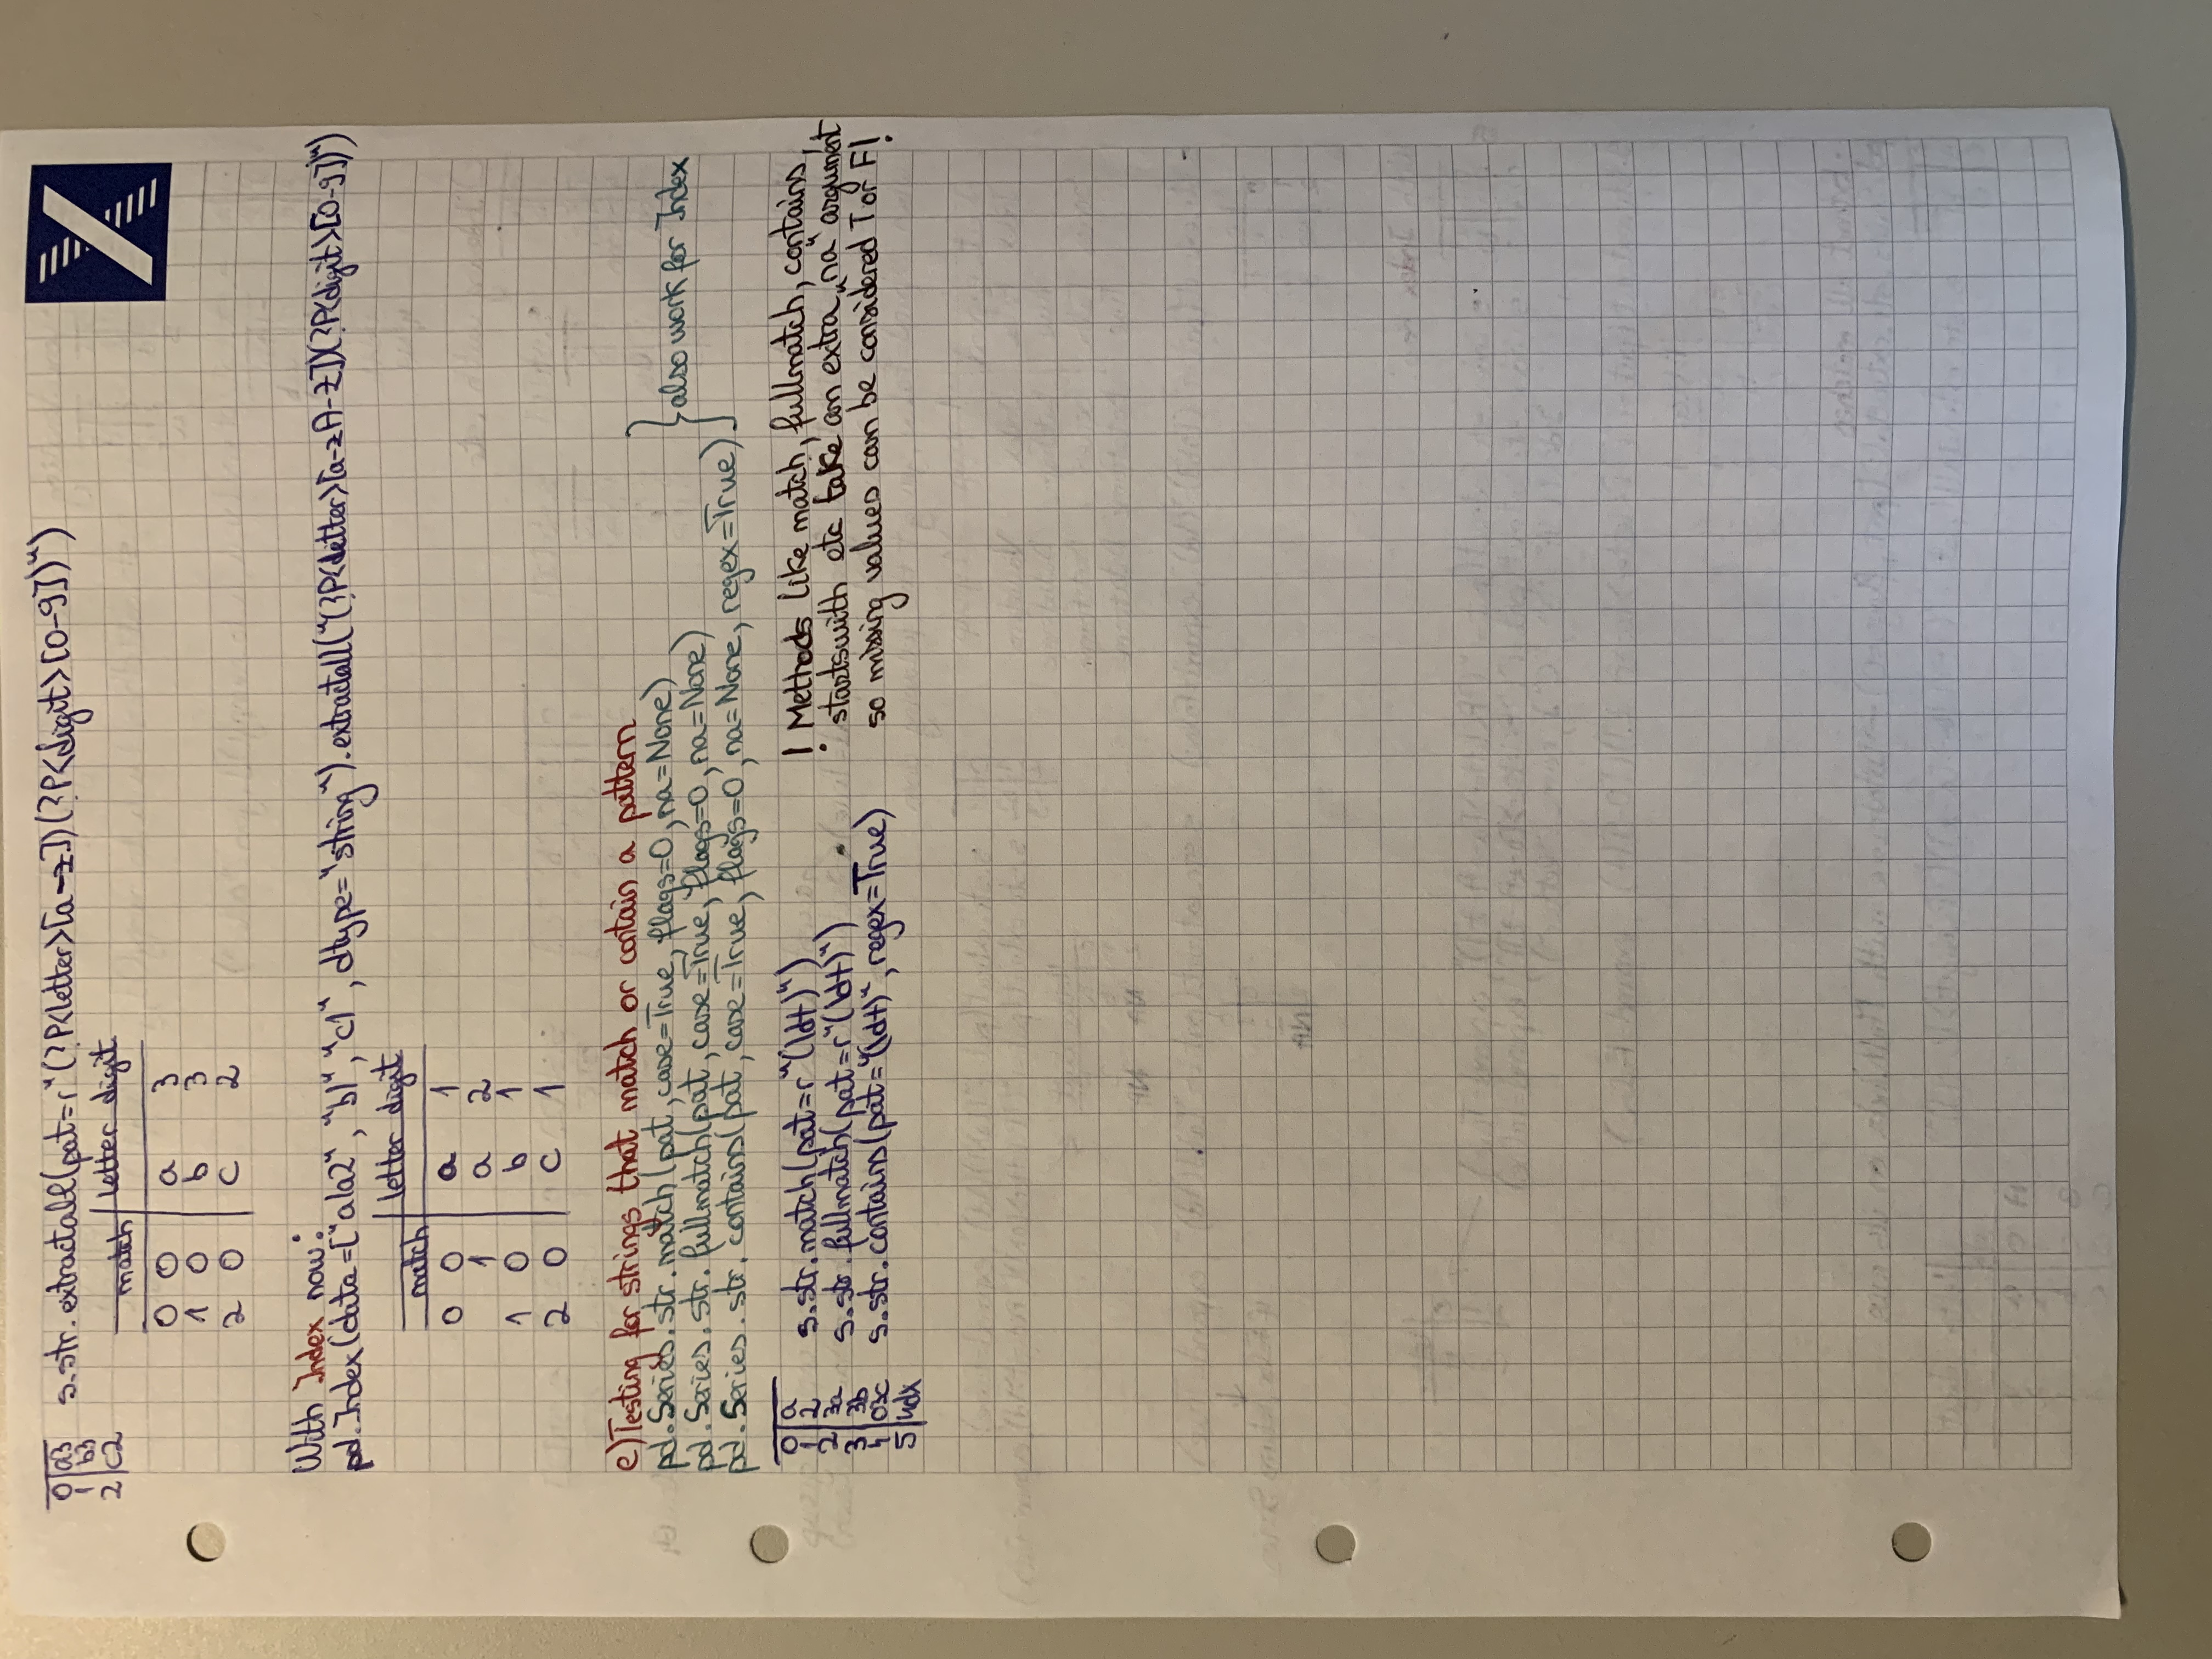 0|a3 s.str.extractall(pat=r"(?P<letter>[a-z])(?P<digit>[0-9])")
1|b3
2|c2
letter digit
match
0 0 a 3
1 0 b 3
2 0 c 2
With Index now:
pd.Index(data=["a1a2", "b1", "c1", dtype="string").extractall("(?P<letter>[a-zA-Z])(?P<digit>[0-9])")
letter digit
match
0 0 a 1
1 a 2
1 0 b 1
2 0 c 1
e) Testing for strings that match or contain a pattern
pd.Series.str.match(pat, case=True, flags=0, na=None)
pd.Series.str.fullmatch(pat, case=True, flags=0, na=None)
pd.Series.str.contains(pat, case=True, flags=0, na=None, regex=True)
also work for Index
0|a
1|2
2|3a
3|3b
4|03c
5|4dx
s.str.match(pat=r"(\d+)")
s.str.fullmatch(pat=r"(\d+)")
s.str.contains(pat="(\d+)", regex=True)
! Methods like match, fullmatch, contains,
startswith etc take an extra „na" argument
so missing values can be considered T or F!